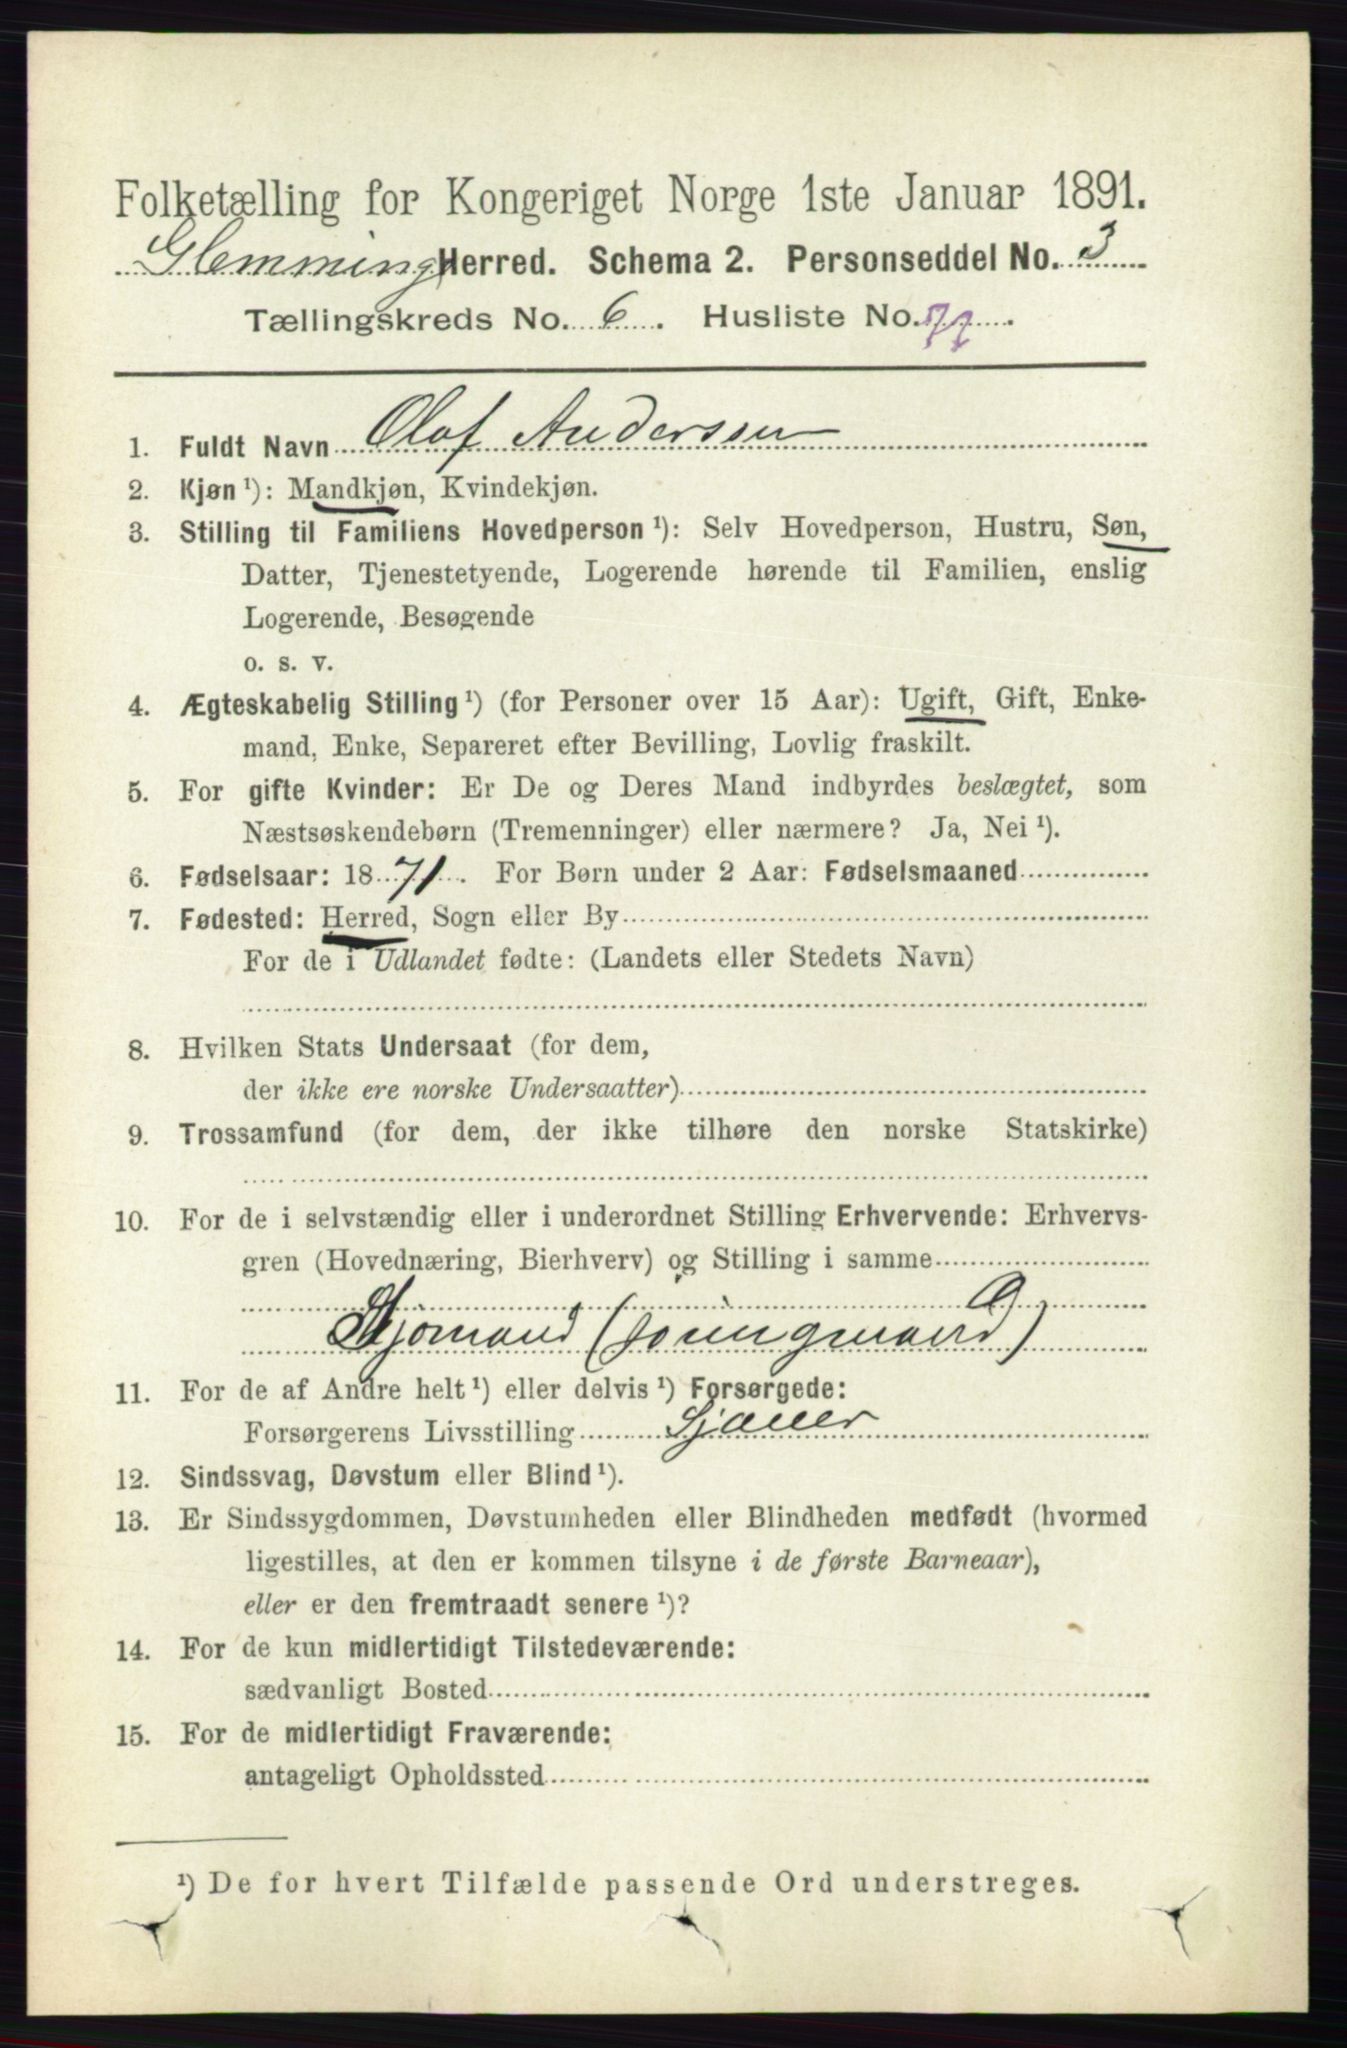 Folketælling for Kongeriget Norge 1ste Januar 1891.
Glemminge Herred. Schema 2. Personseddel No. 3
Tællingskreds No. 6. Husliste No. 77.
1. Fuldt Navn Olaf Andersen
2. Kjøn ¹): Mandkjøn, Kvindekjøn.
3. Stilling til Familiens Hovedperson ¹): Selv Hovedperson, Hustru, Søn,
Datter, Tjenestetyende, Logerende hørende til Familien, enslig
Logerende, Besøgende
o. s. v.
4. Ægteskabelig Stilling ¹) (for Personer over 15 Aar): Ugift, Gift, Enke-
mand, Enke, Separeret efter Bevilling, Lovlig fraskilt.
5. For gifte Kvinder: Er De og Deres Mand indbyrdes beslægtet, som
Næstsøskendebørn (Tremenninger) eller nærmere? Ja, Nei ¹).
6. Fødselsaar: 1871. For Børn under 2 Aar: Fødselsmaaned
7. Fødested: Herred, Sogn eller By
For de i Udlandet fødte: (Landets eller Stedets Navn)
8. Hvilken Stats Undersaat (for dem,
der ikke ere norske Undersaatter)
9. Trossamfund (for dem, der ikke tilhøre den norske Statskirke)
10. For de i selvstændig eller i underordnet Stilling Erhvervende: Erhvervs-
gren (Hovednæring, Bierhverv) og Stilling i samme
Sjømand (jüngmand)
11. For de af Andre helt ¹) eller delvis ¹) Forsørgede:
Forsørgerens Livsstilling Sjauer
12. Sindssvag, Døvstum eller Blind ¹).
13. Er Sindssygdommen, Døvstumheden eller Blindheden medfødt (hvormed
ligestilles, at den er kommen tilsyne i de første Barneaar),
eller er den fremtraadt senere ¹)?
14. For de kun midlertidigt Tilstedeværende:
sædvanligt Bosted
15. For de midlertidigt Fraværende:
antageligt Opholdssted
¹) De for hvert Tilfælde passende Ord understreges.